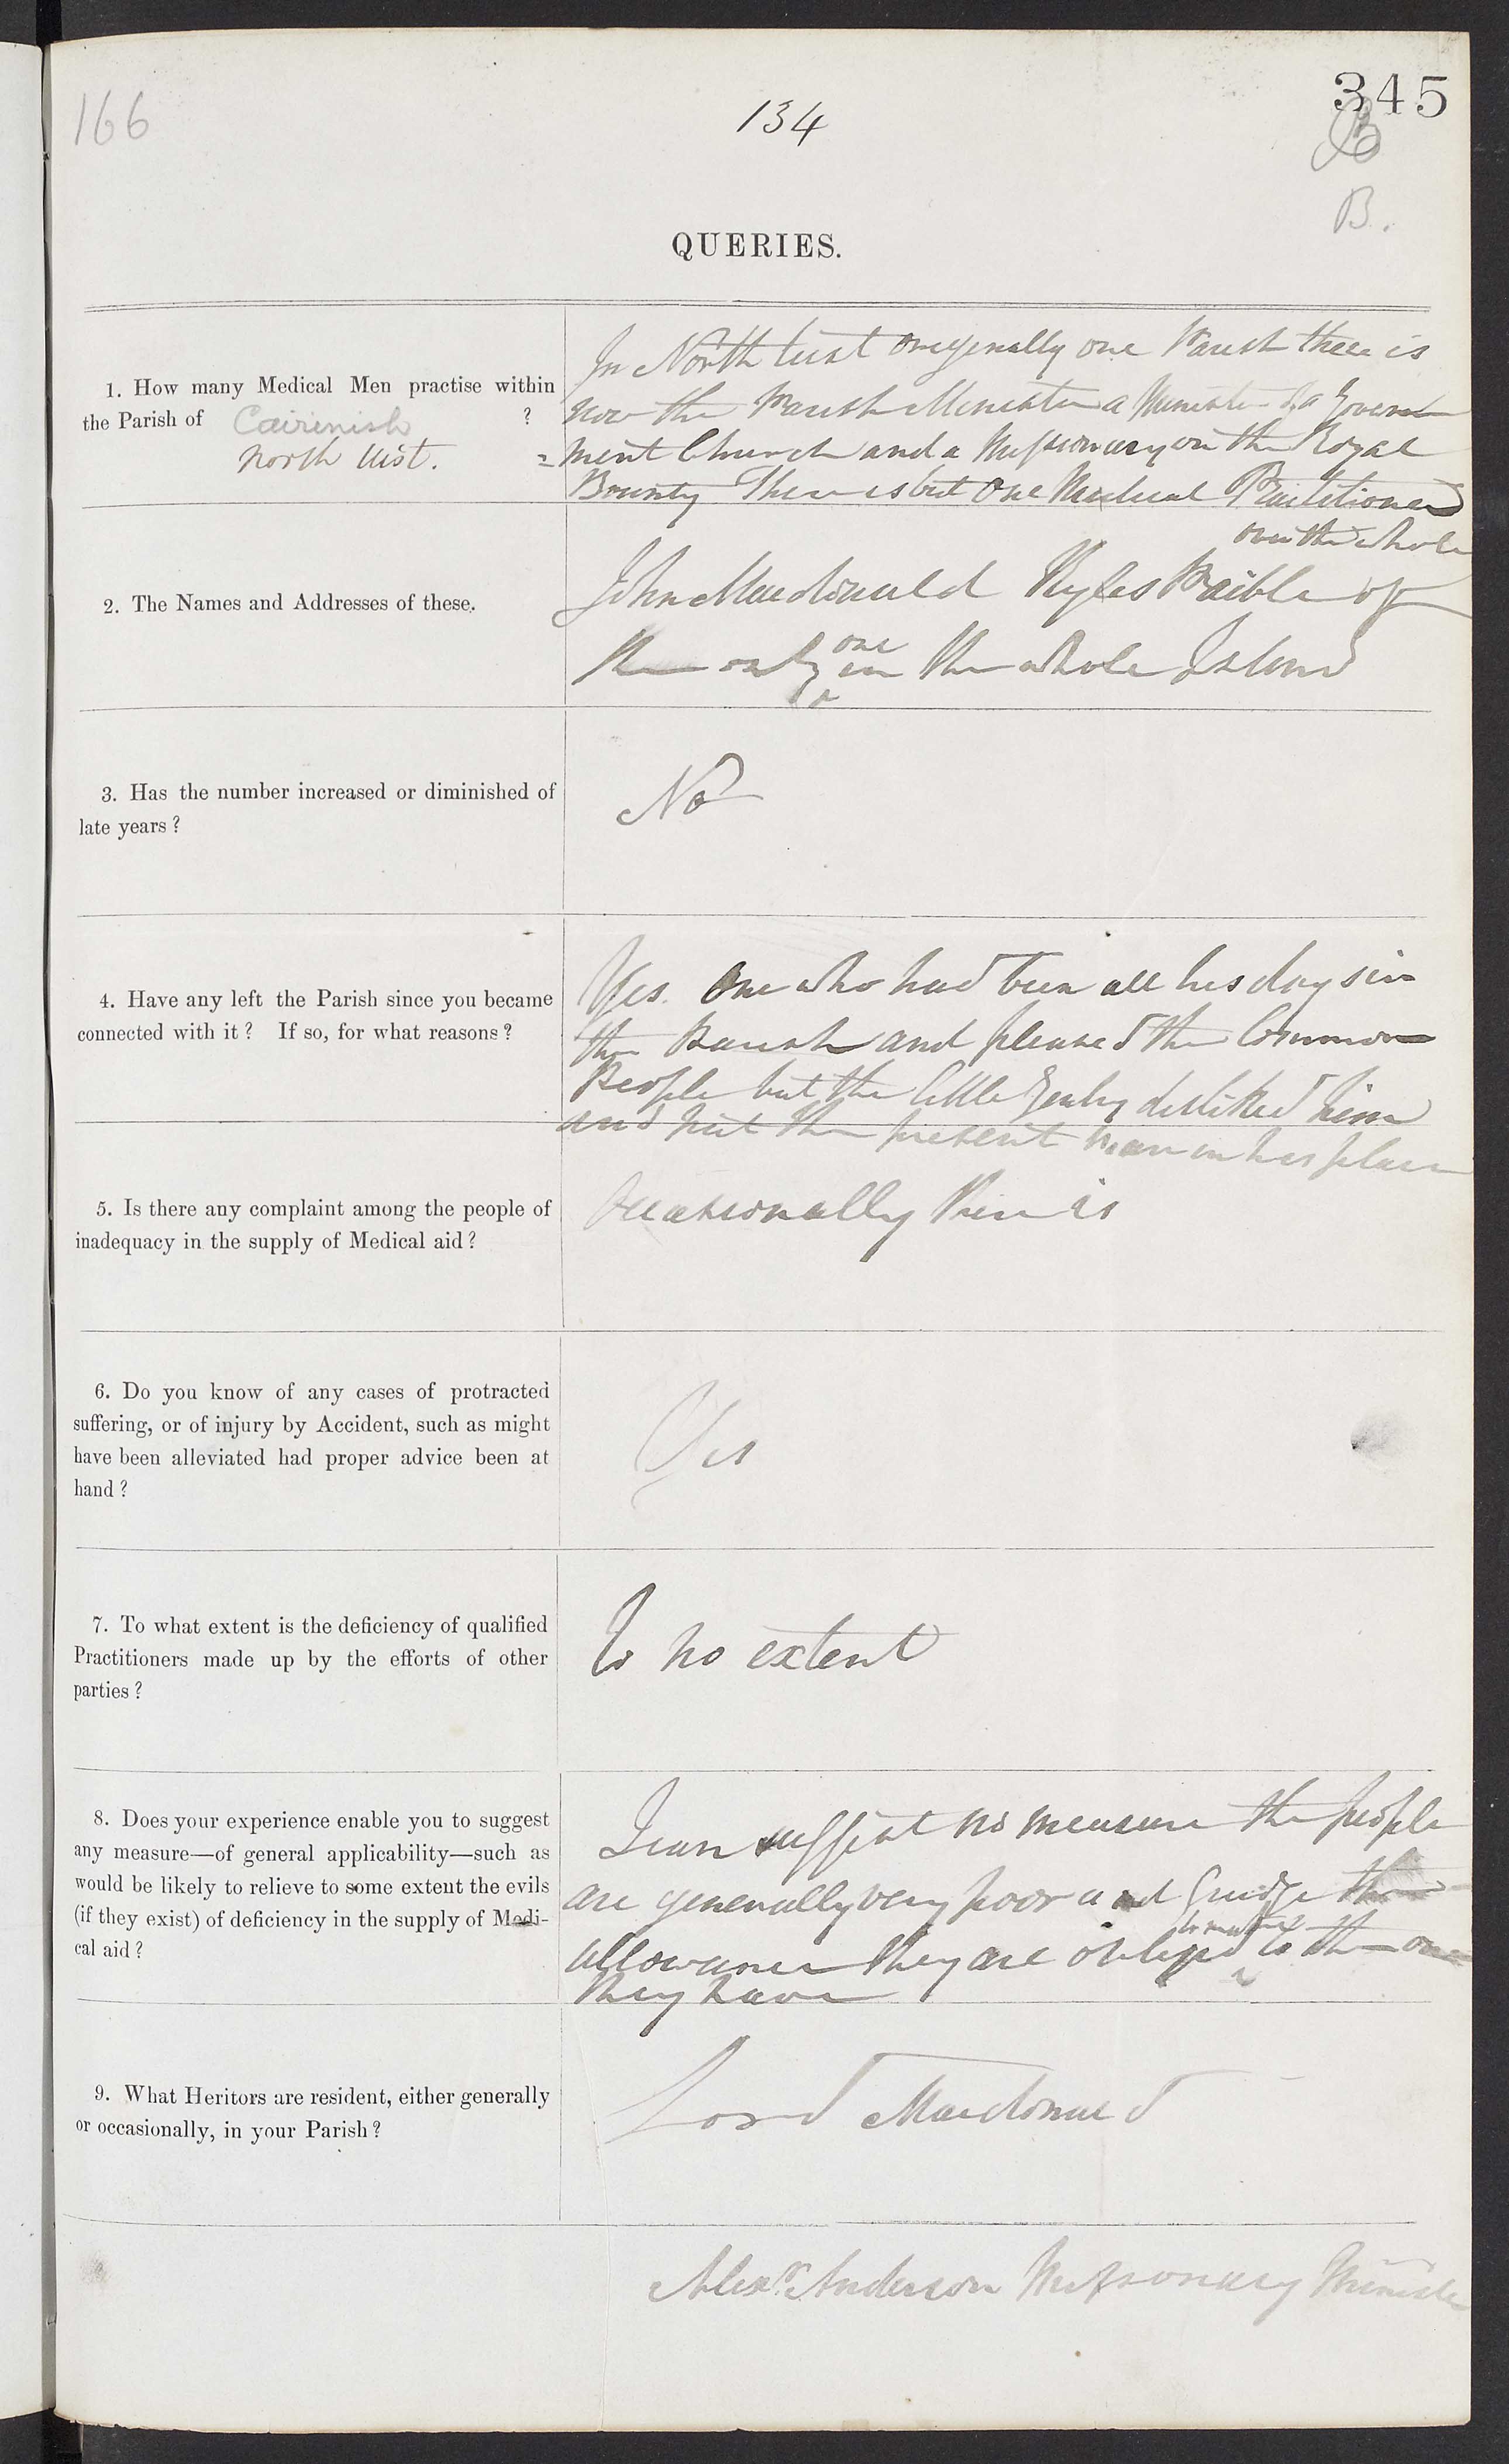 166
134
345
B
B.
QUERIES.
1. How many Medical Men practise within
the Parish of Cairinish ?
North Uist.
In North Uist oregenally one Parish there is
now the Parish Minister a Minister of a Govern
=ment Church and a Missionary on the Royal
Bounty There is but One Medical Practitioner
over the whole
2. The Names and Addresses of these.
John Macdonald Kyles Paible
the only one in the whole Island
3. Has the number increased or diminished of
late years ?
No
4. Have any left the Parish since you became
connected with it ? If so, for what reasons ?
Yes. One who had been all his days in
the Parish and pleased the Common
People but the little Gentry disliked him
and put the present man in his place
5. Is there any complaint among the people of
inadequacy in the supply of Medical aid ?
Occasionally there is
6. Do you know of any cases of protracted
suffering, or of injury by Accident, such as might
have been alleviated had proper advice been at
hand ?
Yes
7. To what extent is the deficiency of qualified
Practitioners made up by the efforts of other
parties ?
To no extent
8. Does your experience enable you to suggest
any measure—of general applicability—such as
would be likely to relieve to some extent the evils
(if they exist) of deficiency in the supply of Medi-
cal aid ?
I can suggest no measure the people
are generally very poor and grudge the
allowance they are obliged to make to the one
they have
9. What Heritors are resident, either generally
or occasionally, in your Parish ?
Lord Macdonald
Alexr. Anderson Missionary Minister